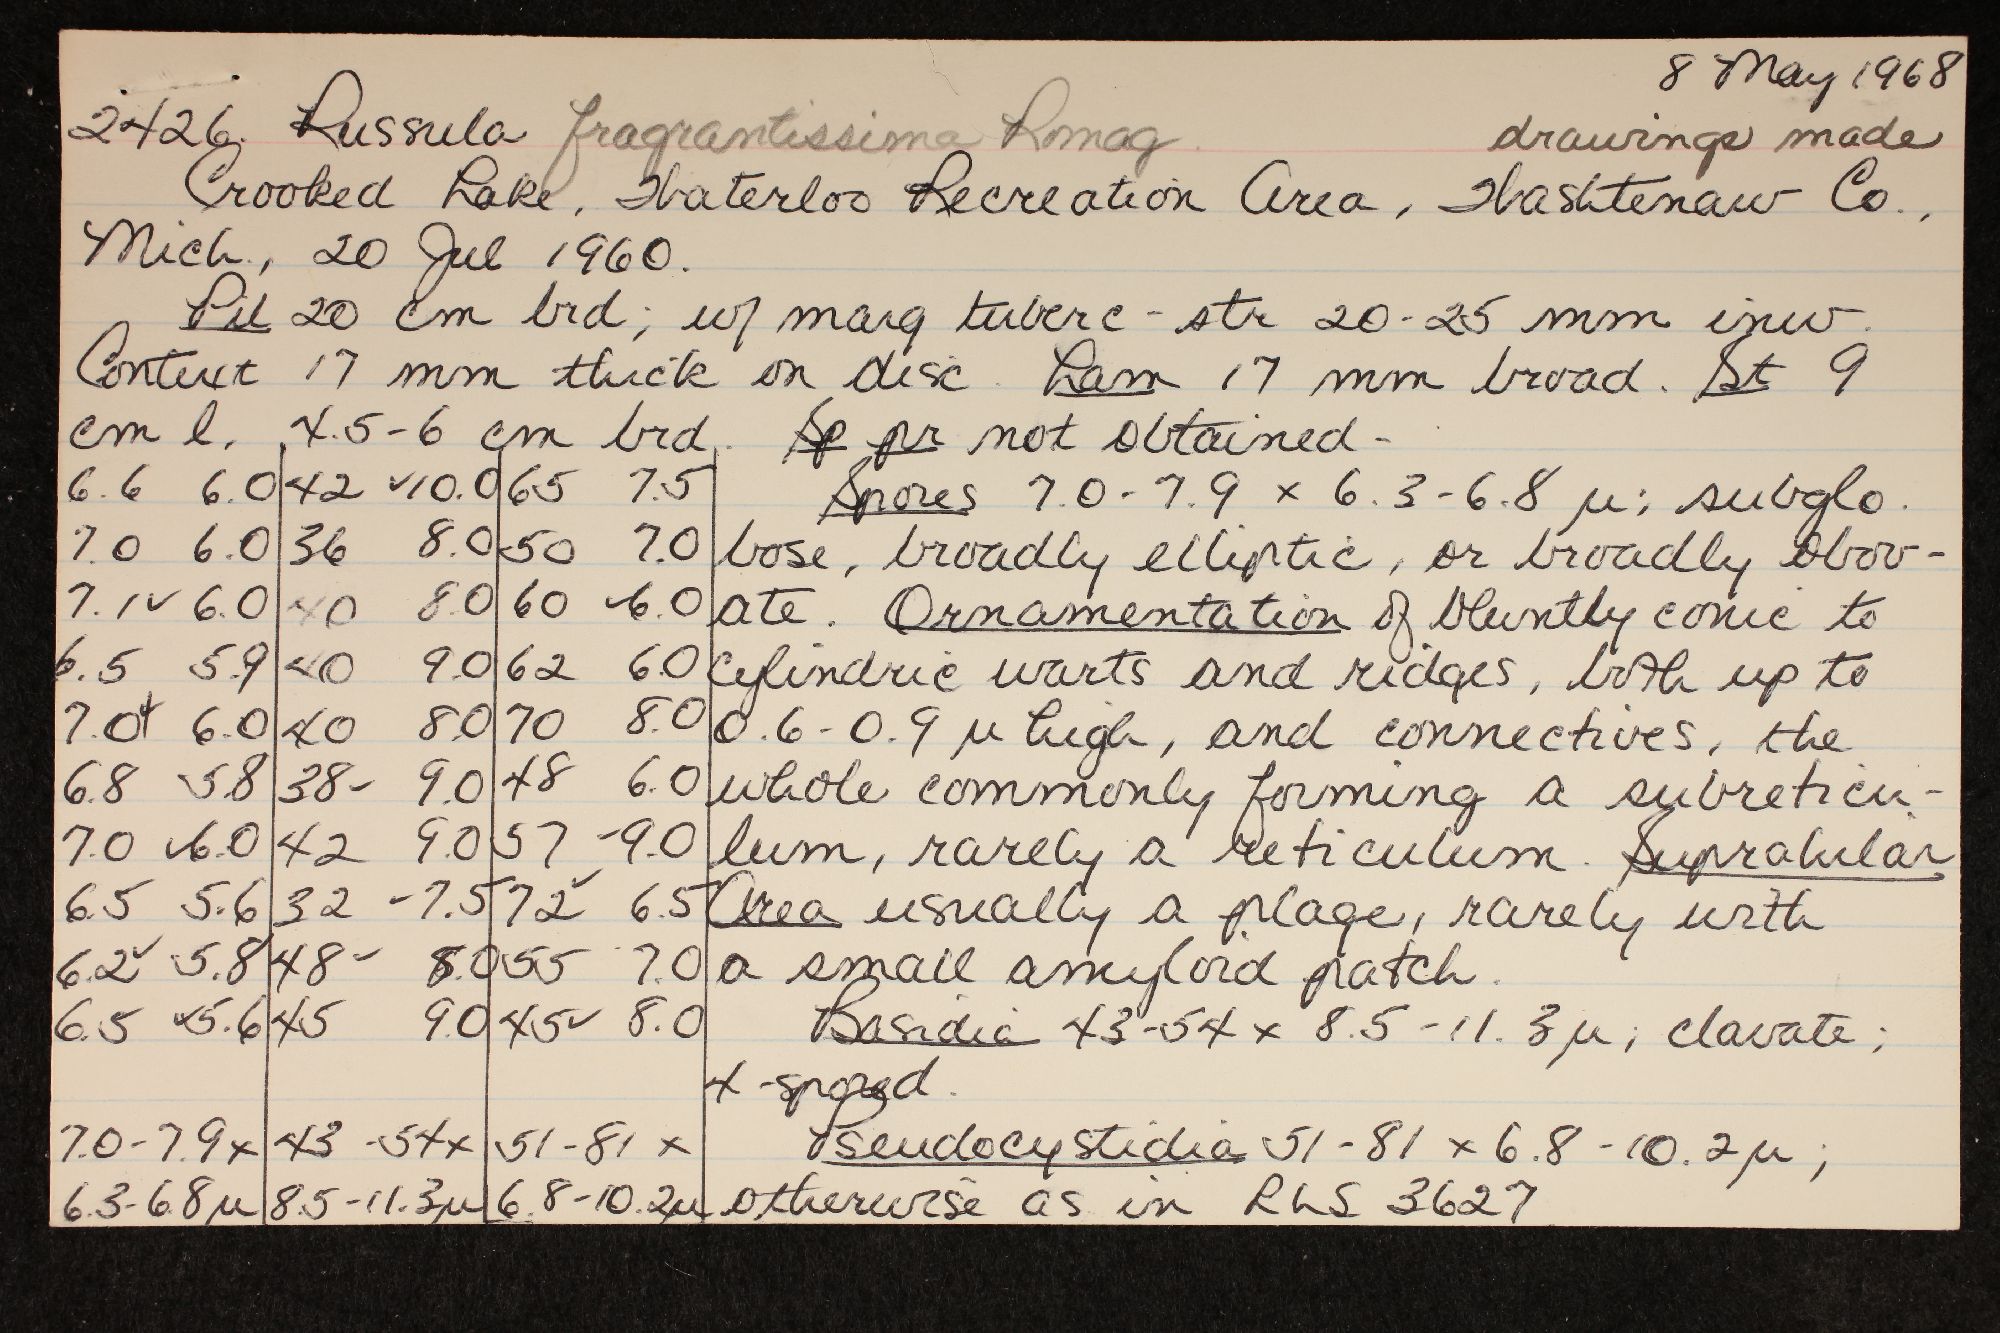 8 May 1968
2426. Russula fragrantissima Romag. drawings made
Crooked Lake, Waterloo Recreation Area, Washtenaw Co.,
Mich., 20 Jul 1960.
Pil 20 cm brd; w/ marg tuberc-str 20-25 mm inw.
Context 17 mm thick on disc. Lam 17 mm broad. St 9
cm l, 4.5-6 cm brd. Sp pr not obtained-
6.6 6.0 42 ✓10.0 65 7.5 Spores 7.0-7.9 x 6.3-6.8 µ; subglo.
7.0 6.0 36 8.0 50 7.0 bose, broadly elliptic, or broadly obov-
7.1✓ 6.0 40 8.0 60 ✓6.0 ate. Ornamentation of bluntly conic to
6.5 5.9 40 9.0 62 6.0 cylindric warts and ridges, both up to
7.0+ 6.0 40 8.0 70 8.0 0.6-0.9 µ high, and connectives, the
6.8 5.8 38✓ 9.0 48 6.0 whole commonly forming a subreticu-
7.0 ✓6.0 42 9.0 57 -9.0 lum, rarely a reticulum. Suprahilar
6.5 5.6 32 -7.5 72✓ 6.5 Area usually a plage, rarely with
6.2✓ 5.8 48✓ 8.0 55 7.0 a small amyloid patch.
6.5 ✓5.6 45 9.0 45✓ 8.0 Basidia 43-54 x 8.5-11.3 µ; clavate;
4-spored.
7.0-7.9 x 43-54 x 51-81 x Pseudocystidia 51-81 x 6.8-10.2 µ;
6.3-6.8 µ 8.5-11.3 µ 6.8-10.2 µ otherwise as in RLS 3627